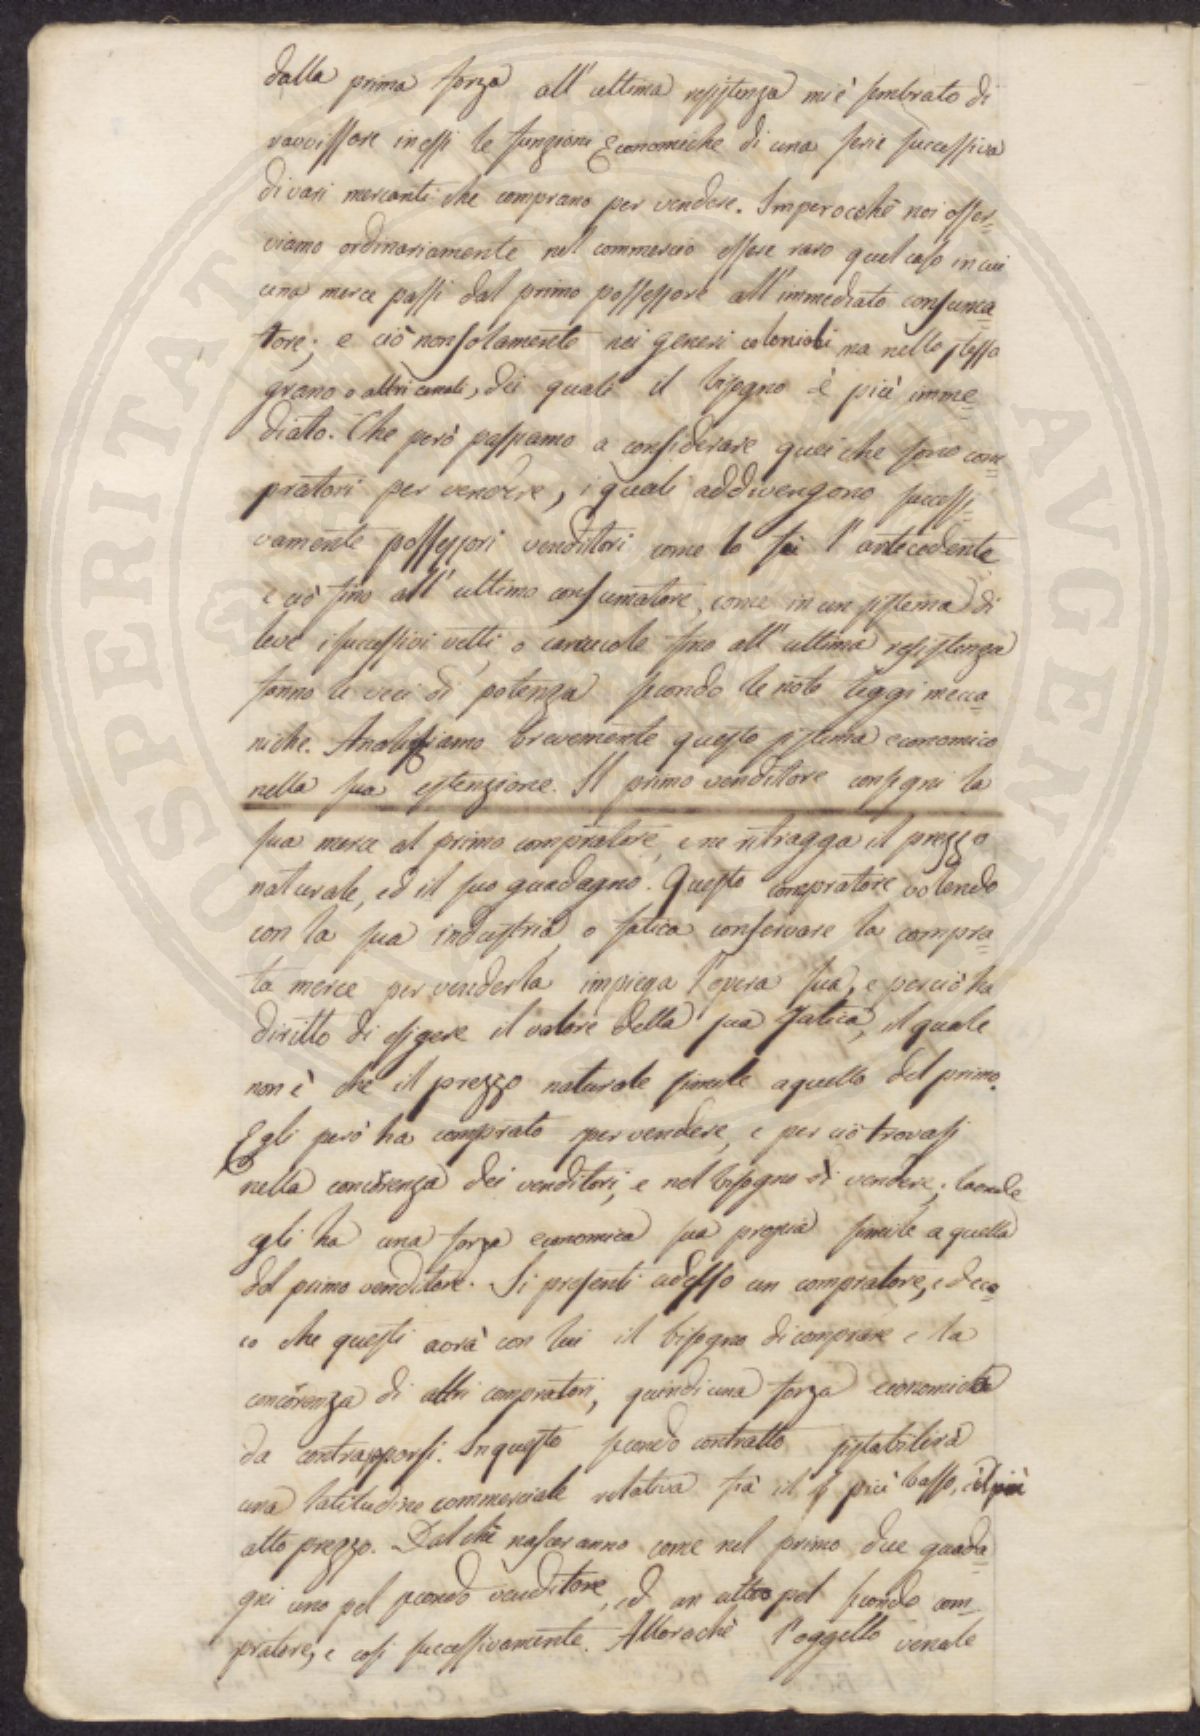 dalla prima forza all'ultima resistenza mi è sembrato di
ravvissare in essi le funzioni Economiche di una serie successiva
di varj mercanti che comprano per vendere. Imperocchè noi osser=
viamo ordinariamente nel commercio essere raro quel caso in cui
una merce passi dal primo possessore all'immediato consuma=
tore; e ciò non solamente nei generi coloniali ma nello stesso
grano o altri cereali, dei quali il bisogno è più imme=
diato. Che però passiamo a considerare quei che sono com=
pratori per vendere, i quali addivengono successi=
vamente possessori venditori come lo fù l'antecedente
e ciò fino all'ultimo consumatore, come in un sistema di
leve i successivi vetti, o carrucole fino all'ultima resistenza
fanno le veci di potenza secondo le note leggi mecca=
niche. Analizziamo brevemente questo sistema economico
nella sua estenzione. Il primo venditore consegni la
sua merce al primo compratore, e ne ritragga il prezzo
naturale, ed il suo guadagno. Questo compratore volendo
con la sua industria, o fatica conservare la compra=
ta merce per venderla impiega l'opera sua, e perciò ha
diritto di esigere il valore della sua fatica, il quale
non è che il prezzo naturale simile a quello del primo.
Egli però ha comprato per vendere, e per ciò trovasi
nella concorenza dei venditori, e nel bisogno di vendere; laonde
egli ha una forza economica sua propia simile a quella
del primo venditore. Si presenti adesso un compratore, ed ec=
co che questi avrà con lui il bisogno di comprare e la
concorenza di altri compratori, quindi una forza economica
da contrapporsi. In questo secondo contratto si stabilirà
una latitudine commerciale relativa frà il più basso, e il più
alto prezzo. Dal chè nasceranno come nel primo due guada=
gni uno pel secondo venditore, ed un altro pel secondo com=
pratore, e così successivamente. Allorachè l'oggetto venale